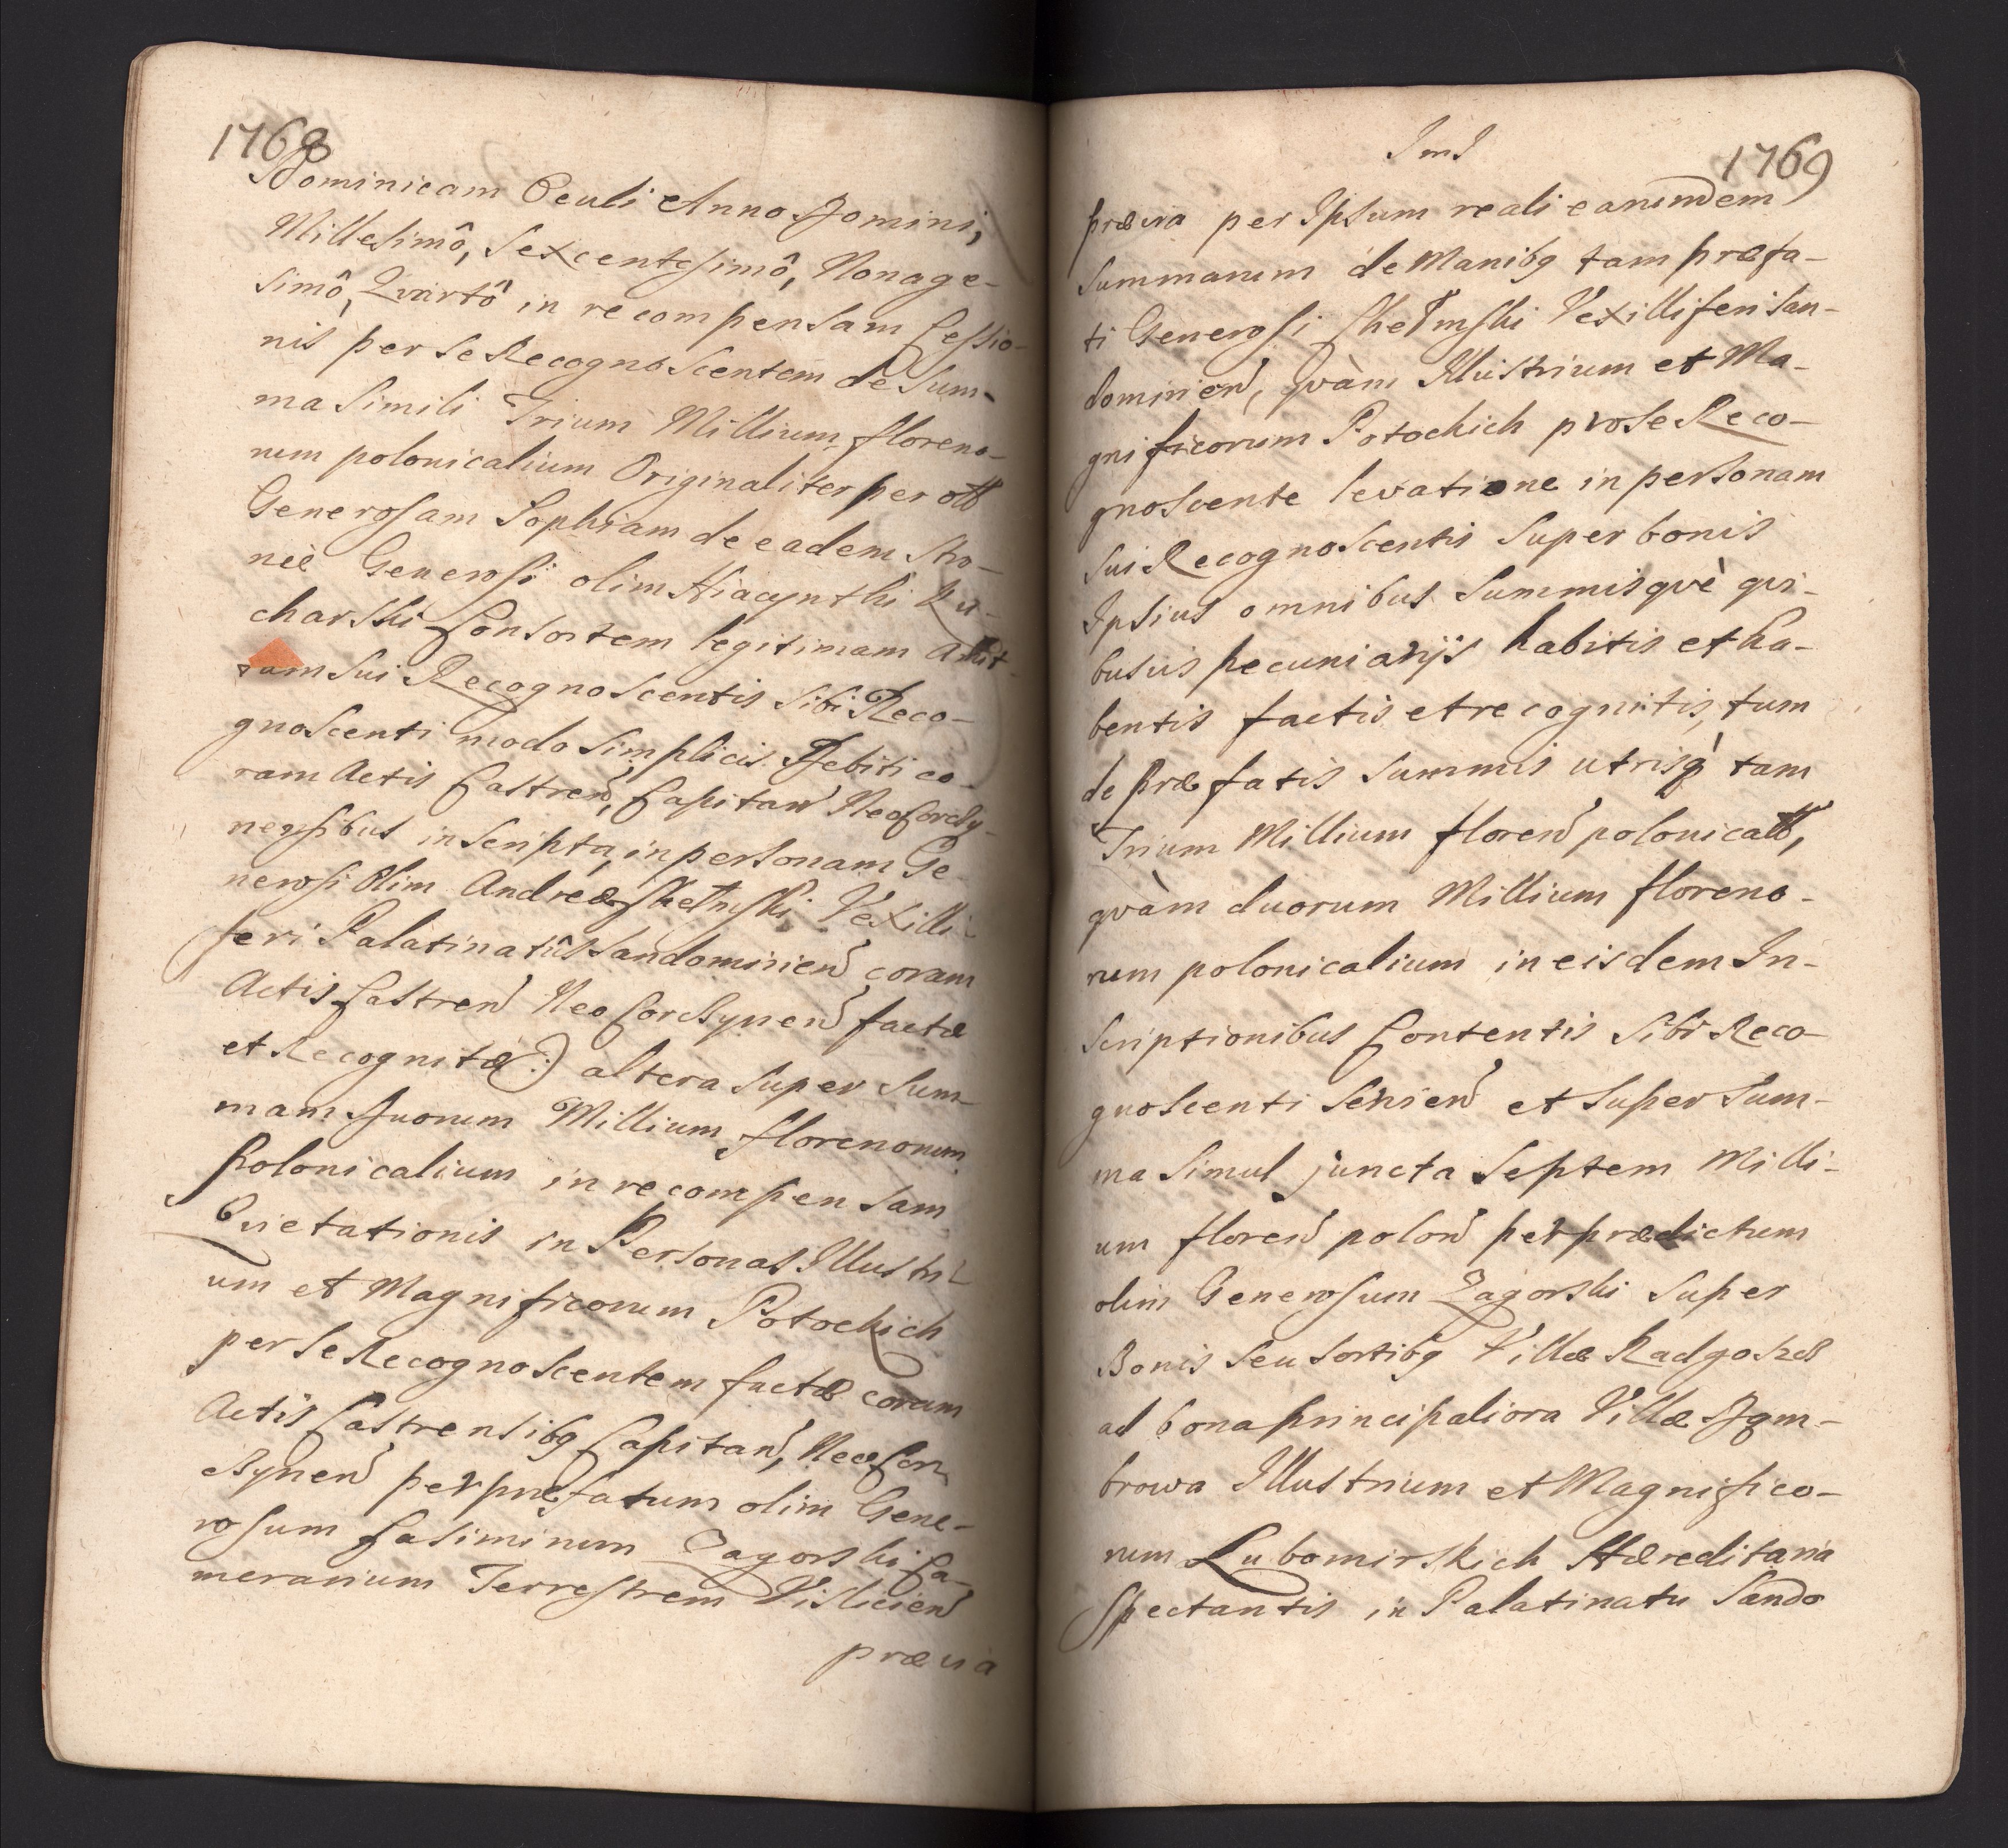 1768
Dominicam Oculi Anno Domini,
Millesimô, Sexcentesimô, Nonage-
simô, Qvartô in recompensam Cessio-
nis per se Recognoscentem de Sum-
ma Simili Trium Millium floreno-
rum polonicalium Originaliter per
Generosam Sophiam de eadem Stro-
nie Generosi olim Hiacynthi Ru-
charski Consortem legitimam Amit-
tam Sui Recognoscentis Sibi Reco-
gnoscenti modo Simplicis Debiti co-
ram Actis Castren, Capitan Neocorcÿ-
nensibus inscripta, in personam Ge-
nerosi Olim Andreæ Vexilli-
feri Palatinatûs Sandomirien coram
Actis Castren Neo Corcÿnen factæ
et Recognitæ :) altera Super Sum-
mam Duorum Millium florenorum
Polonicalium in recompensam
Quietationis in Personas Illustri-
um et Magnificorum Potockich
per se Recognoscentem factæ coram
Actis Castrensibq Capitan, Neo Cor-
cÿnen per præfatum olim Gene-
rosum Casimirum Zagorski Ca-
merarium Terrestrem Vislicien
prævia
ImI
1769
prævia per Ipsum reali earundem
Summarum de Manibq tam præfa-
ti Generosi Vexilliferi San-
domirien, qvàm Illustrium et Ma-
gnificorum Potockich pro se Reco-
gnoscente levatione in personam
sui Recognoscentis Super bonis
Ipsius omnibus Summisqvè qvi-
busvis pecuniarijs habitis et ha-
bentis factis et recognitis, tum
de præfatis Summis utrisq̀ tam
Trium Millium floren polonical,
qvàm duorum Millium floreno-
rum polonicalium in eisdem In-
scriptionibus Contentis Sibi Reco-
gnoscenti Servien et Super Sum-
ma Simul juncta Septem Milli-
um floren polon per prædictum
olim Generosum Zagorski Super
Bonis Seu Sortibq Villæ Radgoszcz
ad bona principaliora Villæ Dąm-
browa Illustrium et Magnifico-
rum Lubomirskich Hæreditaria
Spectantis in Palatinatu Sando